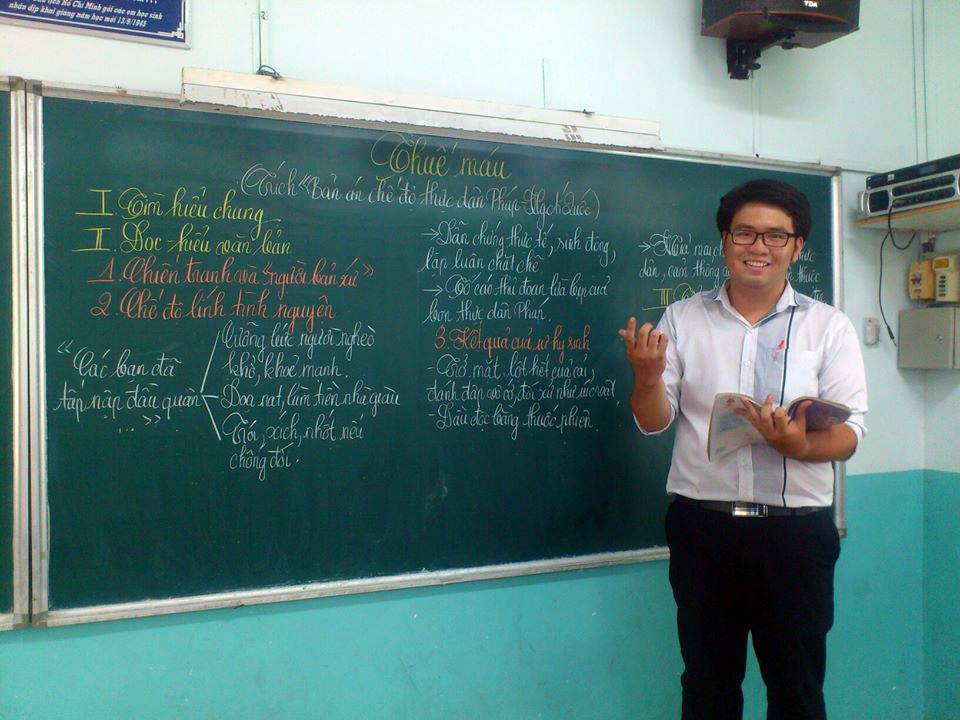 Hồ Chí Minh gửi các em học sinh
nhân dịp khai giảng năm học mới 12/9/1945
TDA
Thuế máu
(Trích "Bản án chế độ thực dân Pháp - Ng. Ái Quốc)
I. Tìm hiểu chung
II. Đọc - hiểu văn bản
1. Chiến tranh và "người bản xứ"
2. Chế độ lính tình nguyện
"Các bạn đã
tấp nập đầu quân
..."
Cưỡng bức người nghèo
khổ, khoẻ mạnh.
Doạ nạt, làm tiền nhà giàu
Trói, xích, nhốt nếu
chống đối.
→ Dẫn chứng thực tế, sinh động,
lập luận chặt chẽ
→ Tố cáo thủ đoạn lừa bịp của
bọn thực dân Pháp.
3. Kết quả của sự hy sinh
- Trở mặt, lột hết của cải,
đánh đập vô cớ, đối xử như súc vật.
- Đầu độc bằng thuốc phiện.
dân, cảm thông
thuộc
III.